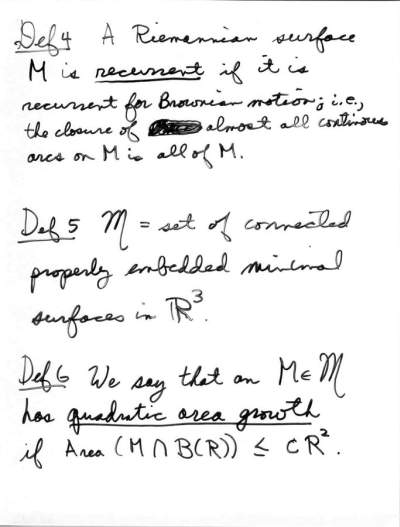 Def 4 A Riemannian surface
M is recurrent if it is
recurrent for Brownian motion; i.e.,
the closure of almost all continuous
arcs on M is all of M.
Def 5 ℳ = set of connected
properly embedded minimal
surfaces in ℝ³.
Def 6 We say that an M∈ℳ
has quadratic area growth
if Area (M ∩ B(R)) ≤ CR².